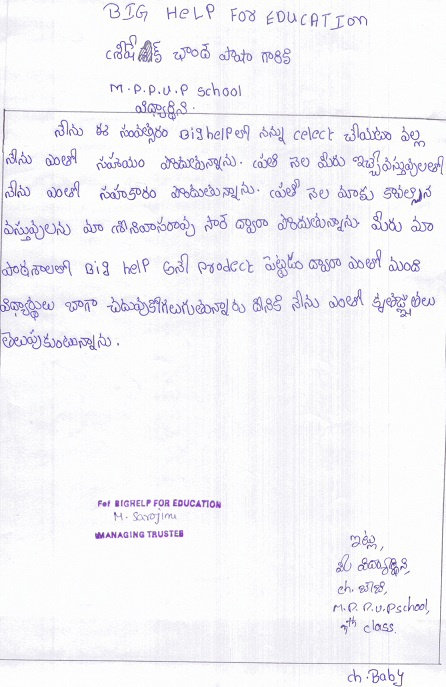 BIG HELP FOR EDUCATION
శ్రీ చాంద్ పాషా గారికి
M.P.P.U.P school
విద్యార్థిని.
నేను ఈ సంవత్సరం Big help లో నన్ను celect చేయటం వల్ల
నేను ఎంతో సహాయం పొందుతున్నాను. ప్రతి నెల మీరు ఇచ్చే వస్తువులతో
నేను ఎంతో సహకారం పొందుతున్నాను. ప్రతి నెల మాకు కావల్సిన
వస్తువులను మా శ్రీనివాసరావు సార్ ద్వారా పొందుతున్నాను. మీరు మా
పాఠశాలలో Big help అనే prodect పెట్టడం ద్వారా ఎంతో మంది
విద్యార్థులు బాగా చదువుకోగలుగుతున్నారు దీనికి నేను ఎంతో కృతజ్ఞతలు
తెలుపుకుంటున్నాను.
For BIGHELP FOR EDUCATION
M. Sarojini
MANAGING TRUSTEE
ఇట్లు,
మీ విద్యార్థిని,
ch. బేబి,
M.P.P.U.P school,
7th class.
ch. Baby